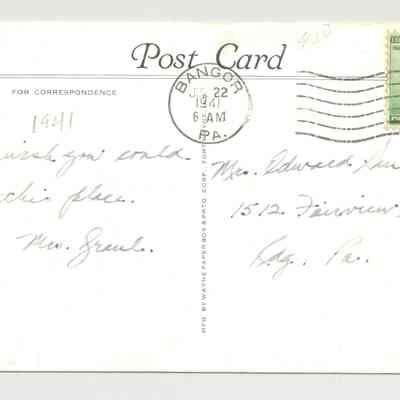 Post Card
FOR CORRESPONDENCE
1941
wish you could
this place.
Mrs.
BANGOR
22
1941
6 AM
PA.
MFG. BY WAYNE PAPER BOX & PRTG. CORP. FORT
Mrs. Edward
1512 Fairview
Rdg. Pa.